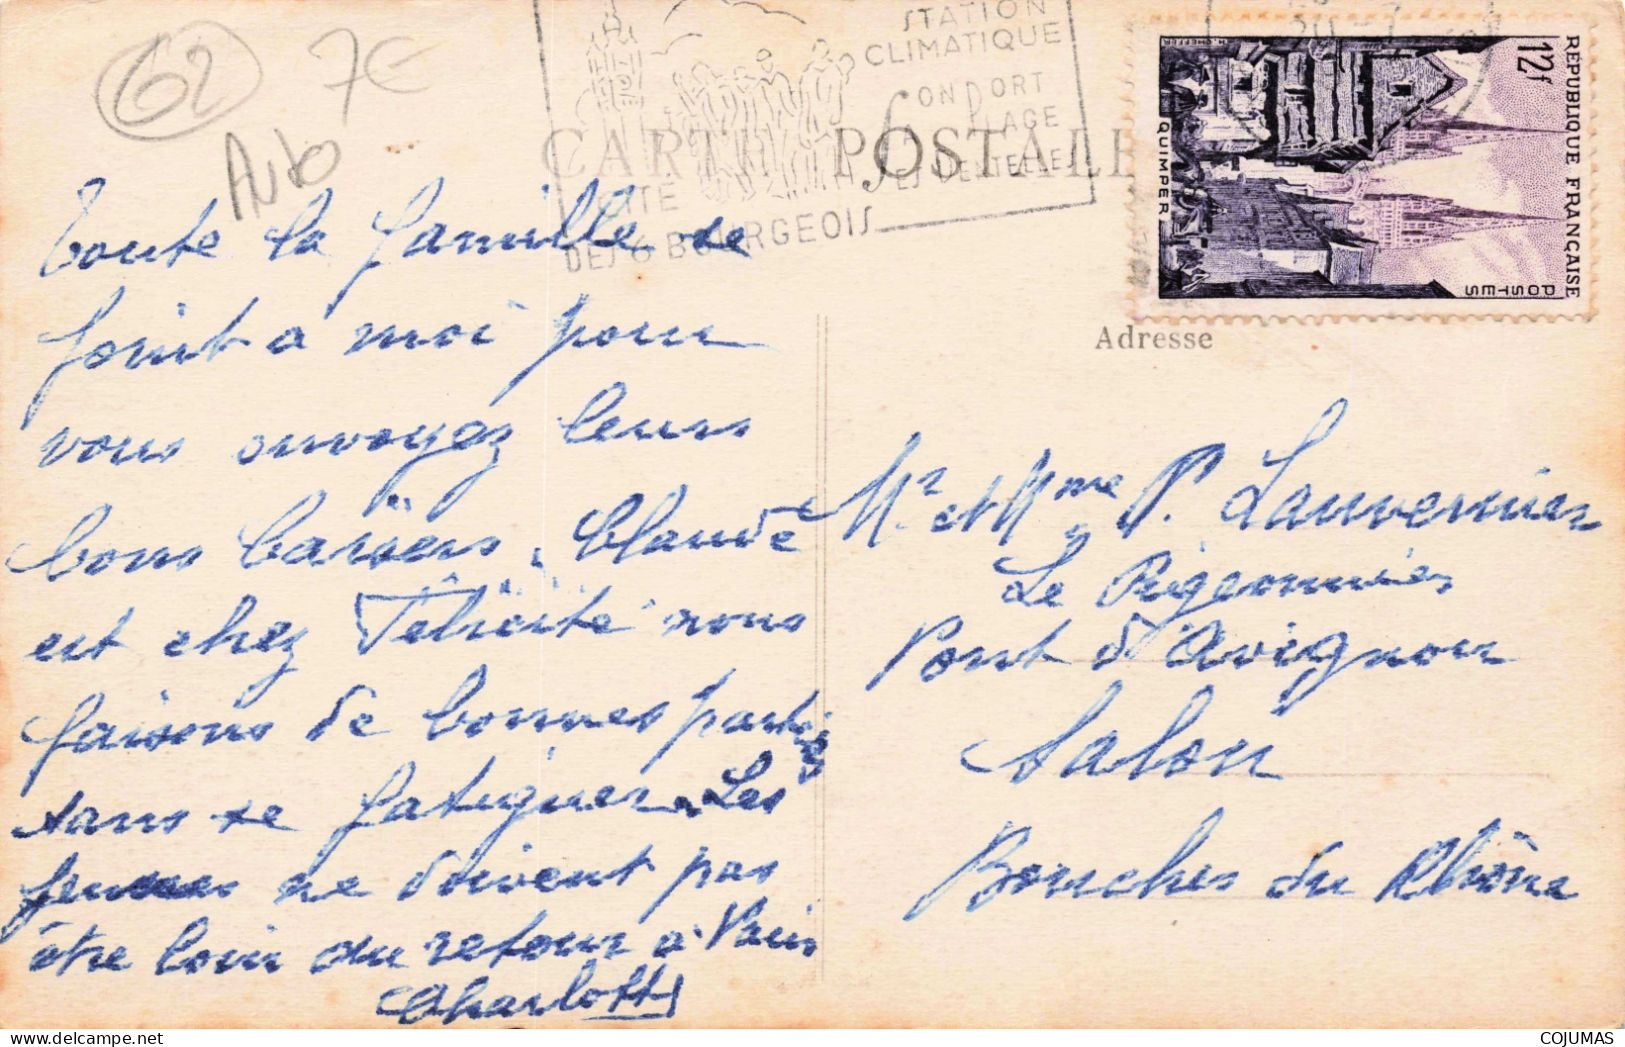 62
7€
Auto
STATION
CLIMATIQUE
SON PORT
SA PLAGE
SES DENTELLES
CITÉ
DES 6 BOURGEOIS
CARTE POSTALE
REPUBLIQUE FRANÇAISE
12f
POSTES
QUIMPER
Adresse
Toute la famille se
joint a moi pour
vous envoyez leurs
bons baisers. Claude
est chez Félicité nous
faisons de bonnes parties
sans se fatiguer. Les
ne doivent pas
être loin du retour a
Charlotte
Mr et Mme P. Lauvernier
Le Pigeonnier
Pont d'Avignon
Salon
Bouches du Rhône
COJUMAS